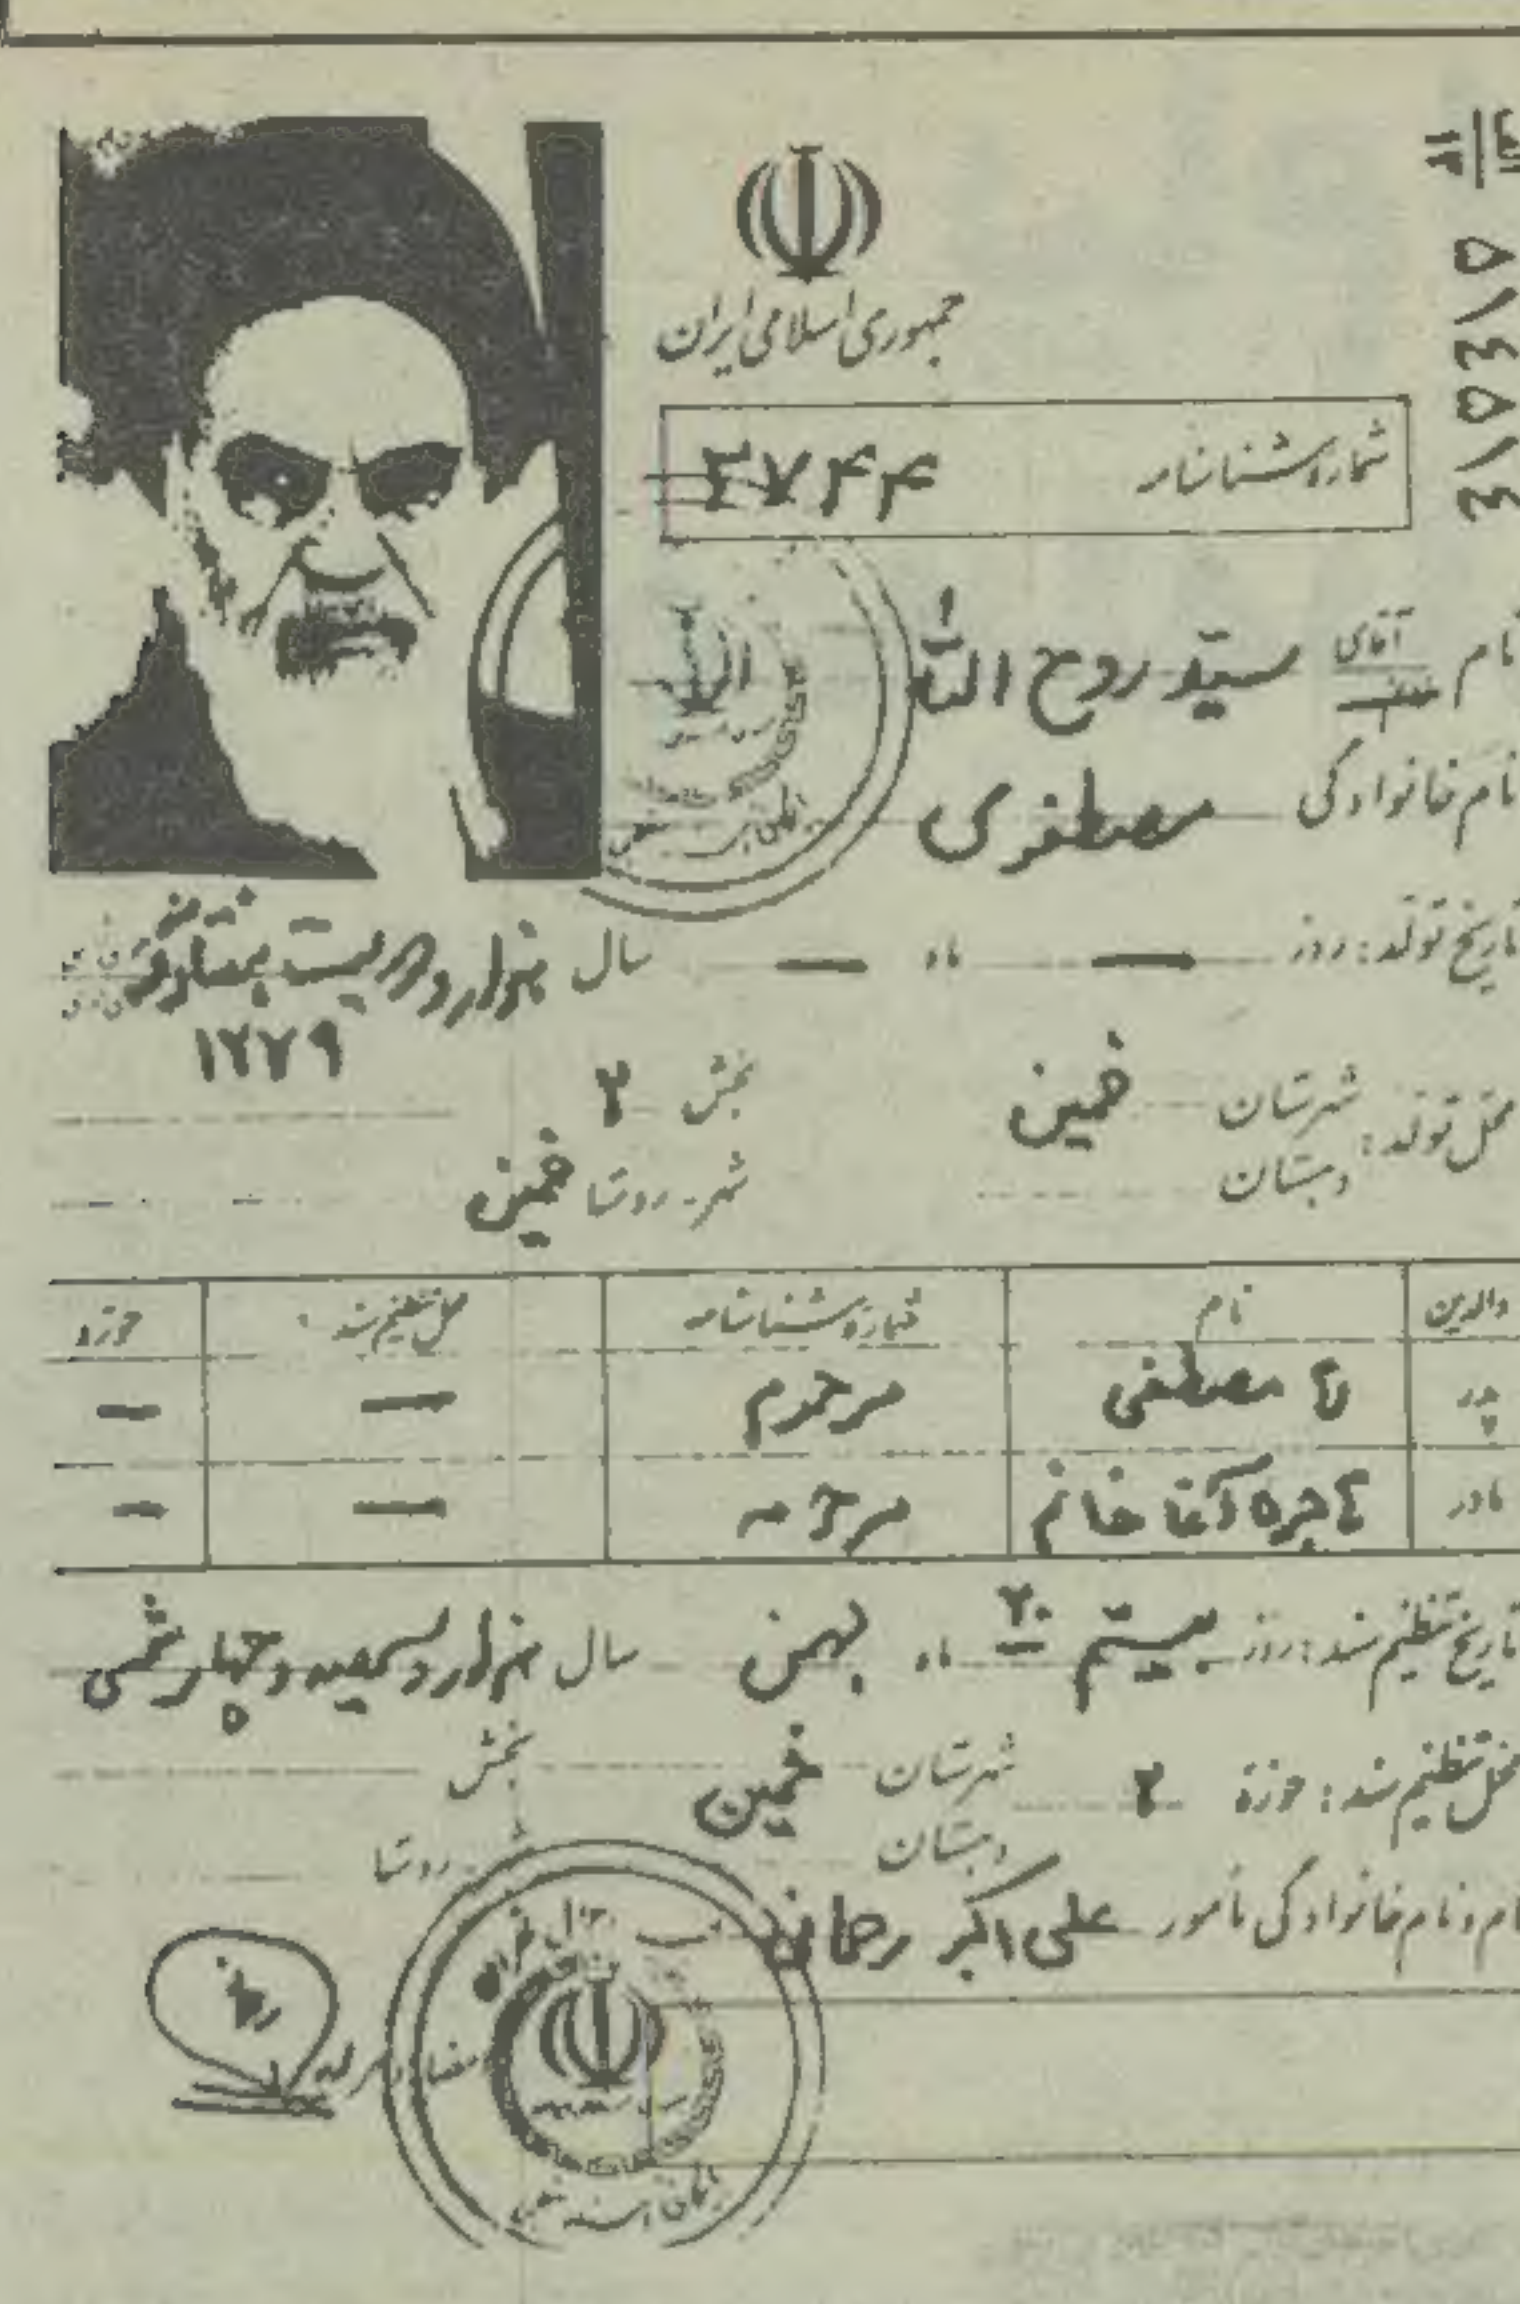 جمهوری اسلامی ایران
شماره شناسنامه ۳۷۴۴
نام آقای سیّد روح اللّه
نام خانوادگی مصطفوی
تاریخ تولد: روز — ماه — سال هزار و دویست هفتاد و نه
۱۲۷۹
محل تولد: شهرستان خمین بخش ۲
دهستان شهر - روستا خمین
والدین نام شماره شناسنامه محل تنظیم سند حوزه
پدر مصطفی مرحوم — —
مادر هاجره آغا خانم مرحومه — —
تاریخ تنظیم سند: روز بیستم ۲۰ ماه بهمن سال هزار و سیصد و چهار شمسی
محل تنظیم سند: حوزه ۲ شهرستان خمین بخش
دهستان روستا
نام و نام خانوادگی مأمور علی اکبر رحمانی